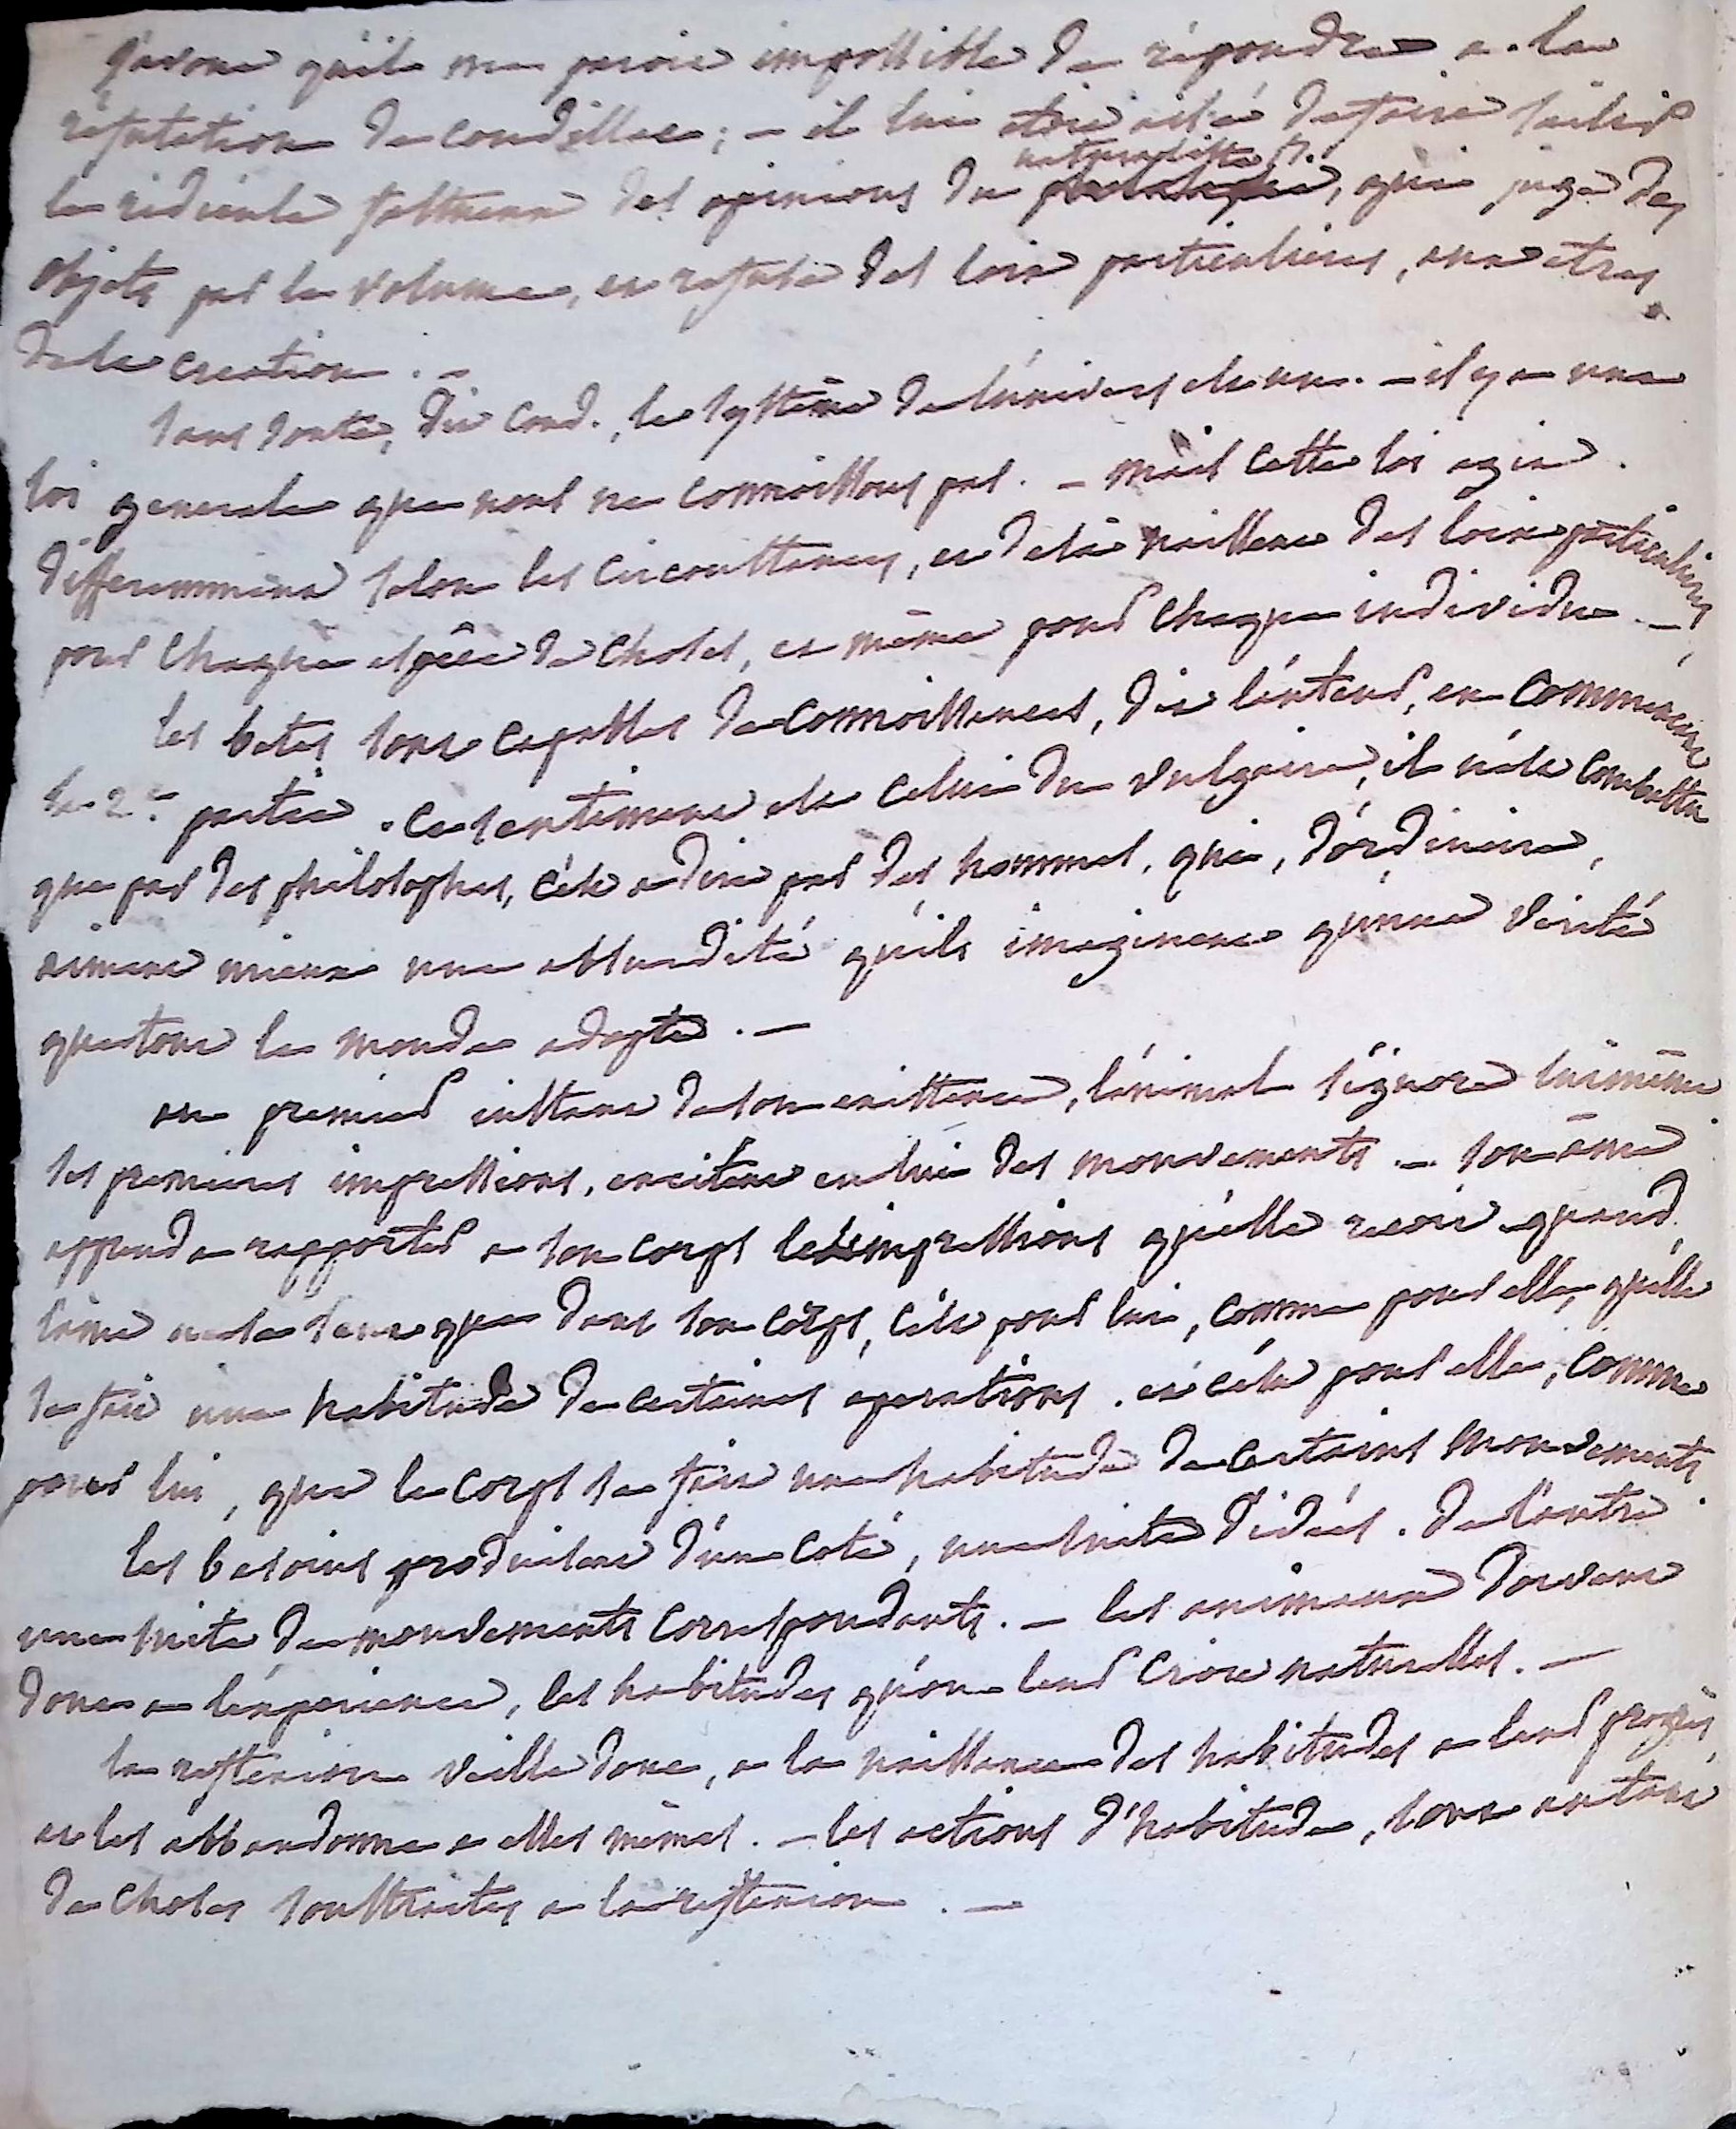 J'avoue qu'il me paroit impossible de répondre a la
réfutation de condillac ; – il lui etoit aisé de faire saisir
le ridicule fastueux des opinions du naturaliste, qui juge des
objets par le volume, et refuse des loix particulieres, aux etres
de la creation. –
sans doute, dit Cond., le systême de l'univers est un. – il y a une
loi generale que nous ne connoissons pas. – mais cette loi agit
differemment selon les circonstances, et de là naissent des loix particulieres
pour chaque espêce de choses, et même pour chaque individu. –
les betes sont capables de connoissances, dit l'auteur, en commencant
la 2e. partie. ce sentiment est celui du vulgaire, il n'est combattu
que par des philosophes, c'est a dire par des hommes, qui, d'ordinaire,
aiment mieux une absurdité qu'ils imaginent qu'une vérité
que tout le monde adopte. –
au premier instant de son existence, l'animal s'ignore lui même
les premieres impressions, excitent en lui des mouvements. – son âme
apprend a rapporter a son corps les impressions qu'elle recoit. quand
l'ame ne se sent que dans son corps, c'est pour lui, comme pour elle, qu'elle
se fait une habitude de certaines operations. et c'est pour elle, comme
pour lui, que le corps se fait une habitude de certains mouvements.
les besoins produisent d'un coté, une suite d'idées. de l'autre
une suite de mouvements correspondants. – les animaux doivent
donc a l'experience, les habitudes qu'on leur croit naturelles. –
la reflexion veille donc, a la naissance des habitudes a leur progrès,
et les abbandonne a elles mêmes. – les actions d'habitude, sont autant
de choses soustraites a la reflexion. –